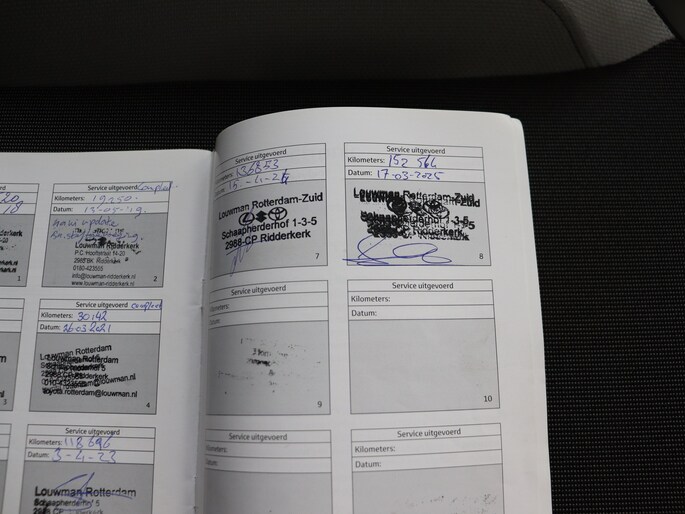 20
18
1
3
Service uitgevoerd Compleet
Kilometers: 19250.
Datum: 15-05-'19.
navi update
Louwman Ridderkerk
P.C. Hooftstraat 14-20
2985 BK Ridderkerk
0180-423555
info@louwman-ridderkerk.nl
www.louwman-ridderkerk.nl
2
Service uitgevoerd compleet
Kilometers: 30142
Datum: 26-03-2021
Louwman Rotterdam
Ridderkerk
rotterdam@louwman.nl
4
Service uitgevoerd
Kilometers: 118 696
Datum: 3-4-23
Louwman Rotterdam
Schaapherderhof 5
Ridderkerk
Service uitgevoerd
136853
15-4-24
Louwman Rotterdam-Zuid
Schaapherderhof 1-3-5
2988 CP Ridderkerk
7
Service uitgevoerd
Kilometers: 152 564
Datum: 17-03-2025
Louwman Rotterdam-Zuid
Schaapherderhof 1-3-5
2988 CP Ridderkerk
8
Service uitgevoerd
Kilometers:
Datum:
9
Service uitgevoerd
Kilometers:
Datum:
10
Service uitgevoerd
Kilometers:
Datum:
Service uitgevoerd
Kilometers:
Datum: